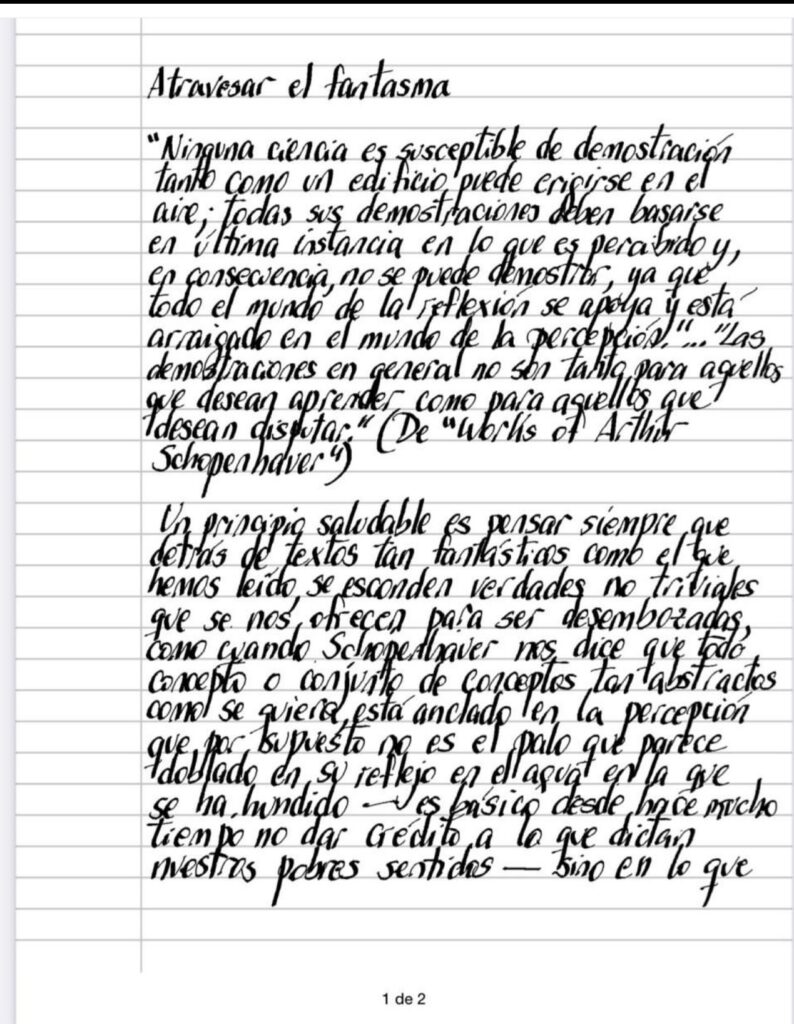 Atravesar el fantasma
"Ninguna ciencia es susceptible de demostración
tanto como un edificio puede erigirse en el
aire; todas sus demostraciones deben basarse
en última instancia en lo que es percibido y,
en consecuencia, no se puede demostrar, ya que
todo el mundo de la reflexión se apoya y está
arraigado en el mundo de la percepción."..."Las
demostraciones en general no son tanto para aquellos
que desean aprender como para aquellos que
desean disputar." (De "Works of Arthur
Schopenhauer")
Un principio saludable es pensar siempre que
detrás de textos tan fantásticos como el que
hemos leído, se esconden verdades no triviales
que se nos ofrecen para ser desembozadas,
como cuando Schopenhauer nos dice que todo
concepto o conjunto de conceptos tan abstractos
como se quiera, está anclado en la percepción
que por supuesto no es el palo que parece
doblado en su reflejo en el agua en la que
se ha hundido — es básico desde hace mucho
tiempo no dar crédito a lo que dictan
nuestros pobres sentidos — sino en lo que
1 de 2